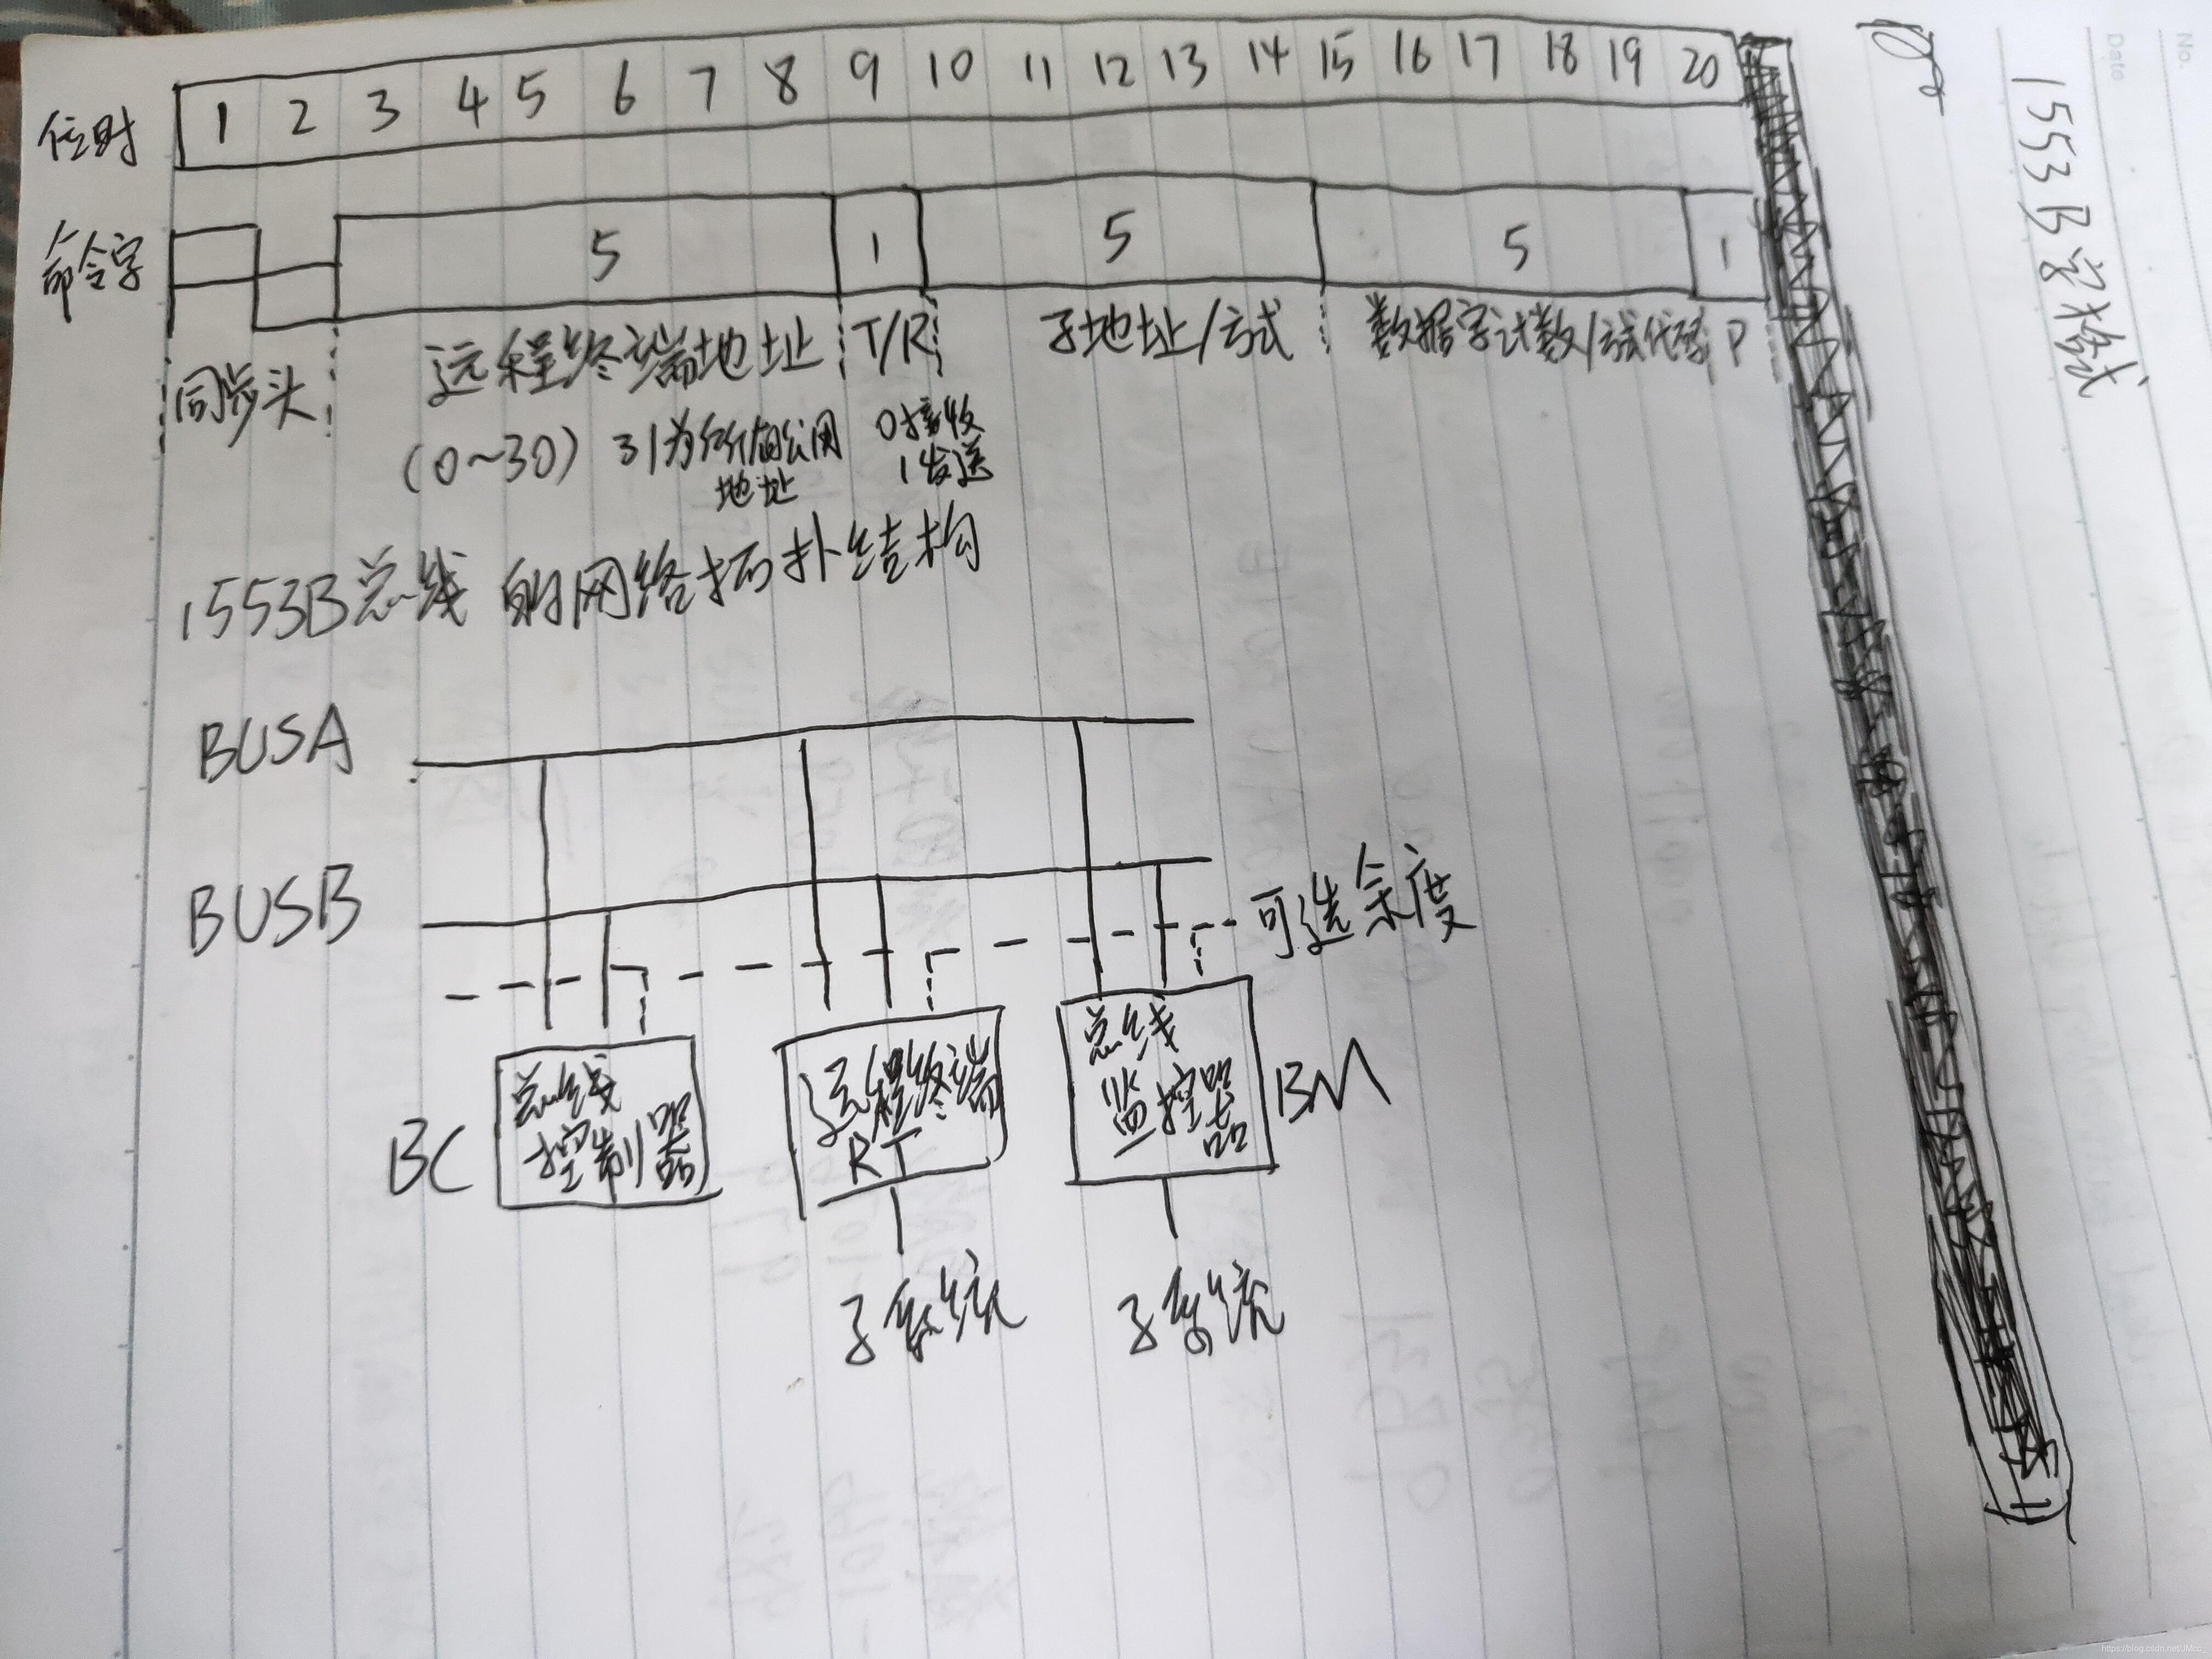 位时 1 2 3 4 5 6 7 8 9 10 11 12 13 14 15 16 17 18 19 20
命令字 5 1 5 5 1
同步头 远程终端地址 T/R 子地址/方式 数据字计数/方式代码 P
(0~30) 31为所有公用 0接收
地址 1发送
1553B总线的网络拓扑结构
BUSA
BUSB
可选余度
BC 总线
控制器
远程终端
RT
总线
监控器 BM
子系统 子系统
1553B字格式
No.
Date
https://blog.csdn.net/JMcc_